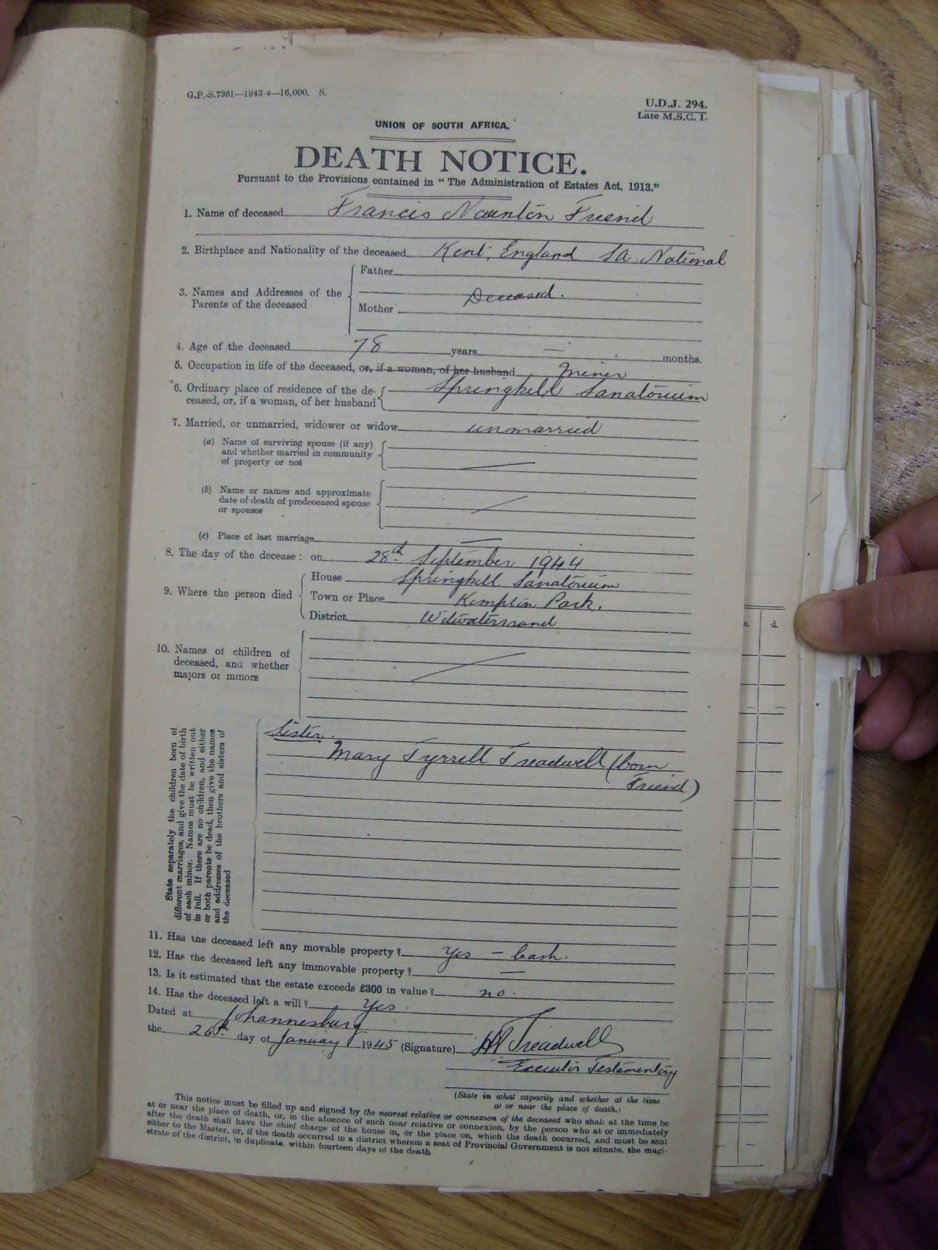 G.P.-S.7361—1943-4—16,000. S.
U.D.J. 294.
Late M.S.C. I.
UNION OF SOUTH AFRICA.
DEATH NOTICE.
Pursuant to the Provisions contained in “The Administration of Estates Act, 1913.”
1. Name of deceased Francis Naunton Friend
2. Birthplace and Nationality of the deceased Kent, England SA National
3. Names and Addresses of the Parents of the deceased
Father
Deceased.
Mother
4. Age of the deceased 78 years — months.
5. Occupation in life of the deceased, or, if a woman, of her husband miner
6. Ordinary place of residence of the de-
ceased, or, if a woman, of her husband Springkell Sanatorium
7. Married, or unmarried, widower or widow unmarried
(a) Name of surviving spouse (if any)
and whether married in community
of property or not
(b) Name or names and approximate
date of death of predeceased spouse
or spouses
(c) Place of last marriage —
8. The day of the decease: on 28th September 1944
9. Where the person died
House Springkell Sanatorium
Town or Place Kempton Park.
District Witwatersrand
10. Names of children of
deceased, and whether
majors or minors
State separately the children born of
different marriages, and give the date of birth
of each minor. Names must be written out
in full. If there are no children, and either
or both parents be dead, then give the names
and addresses of the brothers and sisters of
the deceased
Sister.
Mary Tyrrell Treadwell (born
Friend)
11. Has the deceased left any movable property? Yes — cash.
12. Has the deceased left any immovable property? —
13. Is it estimated that the estate exceeds £300 in value? no.
14. Has the deceased left a will? Yes.
Dated at Johannesburg
the 26th day of January 1945 (Signature) Treadwell
Executor Testamentary
(State in what capacity and whether at the time
at or near the place of death.)
This notice must be filled up and signed by the nearest relative or connexion of the deceased who shall at the time be
at or near the place of death, or, in the absence of such near relative or connexion, by the person who at or immediately
after the death shall have the chief charge of the house in, or the place on, which the death occurred, and must be sent
either to the Master, or, if the death occurred in a district wherein a seat of Provincial Government is not situate, the magi-
strate of the district, in duplicate, within fourteen days of the death
s. d.